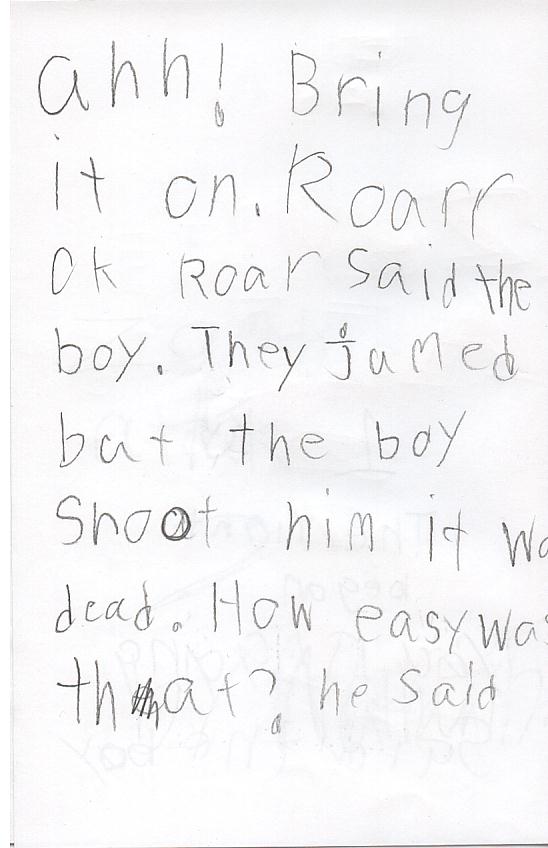 ahh! Bring
it on. Roarr
Ok Roar said the
boy. They jumed
but the boy
Shoot him it wa
dead. How easy was
that? he said